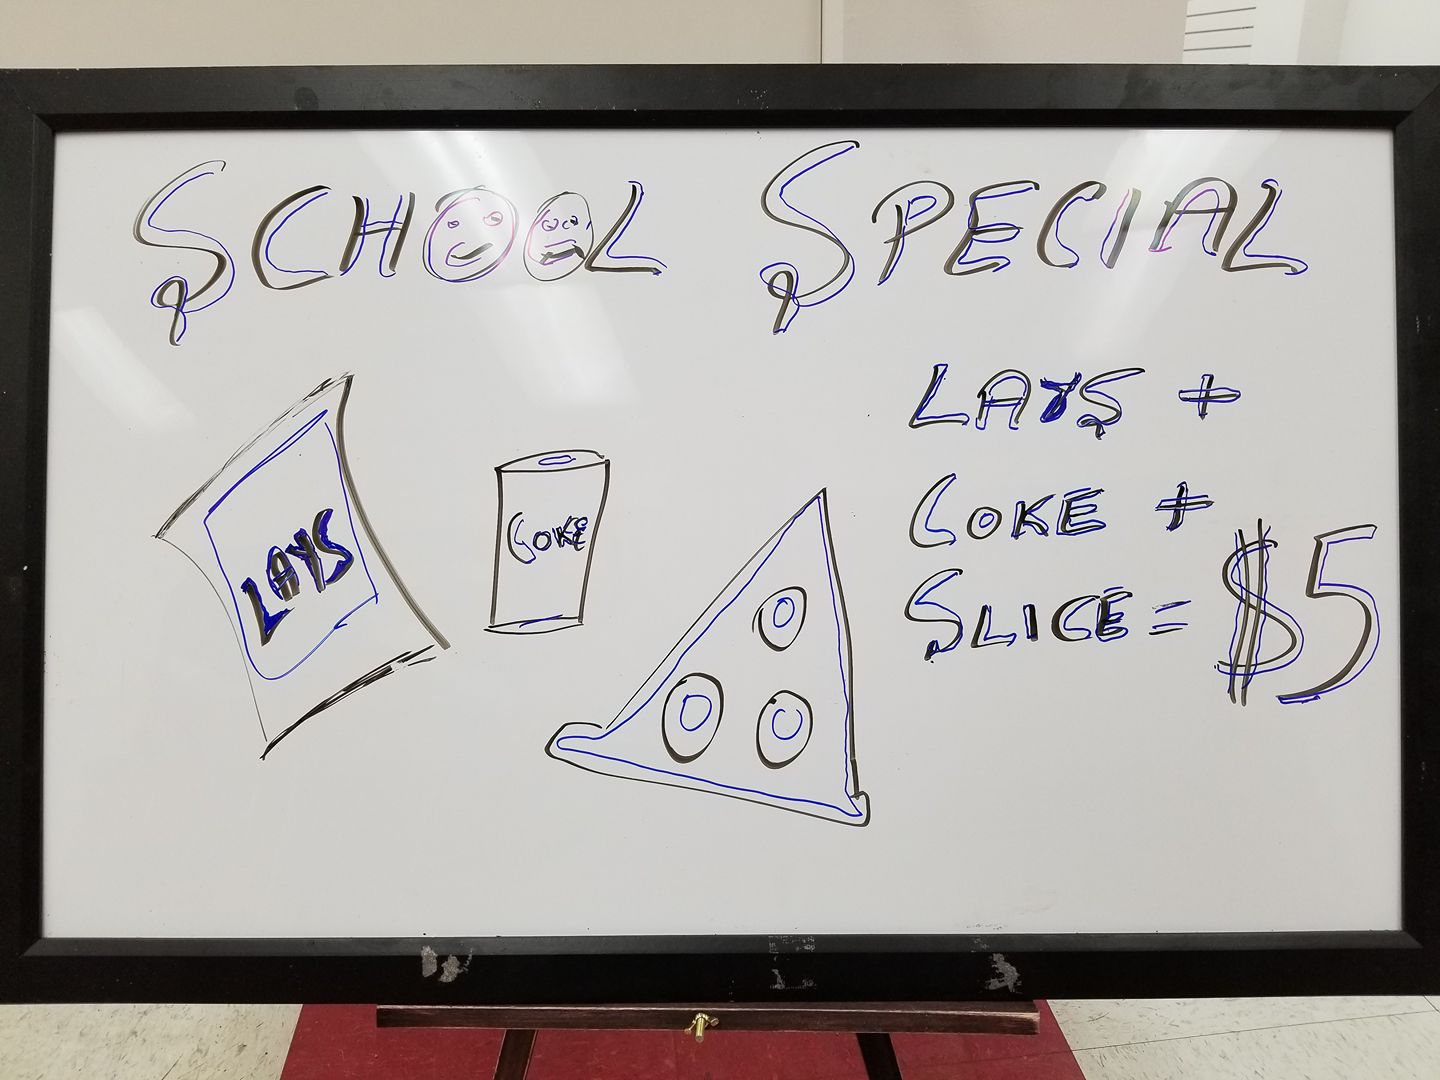 SCHOOL SPECIAL
LAYS +
COKE +
SLICE = $5
LAYS
COKE